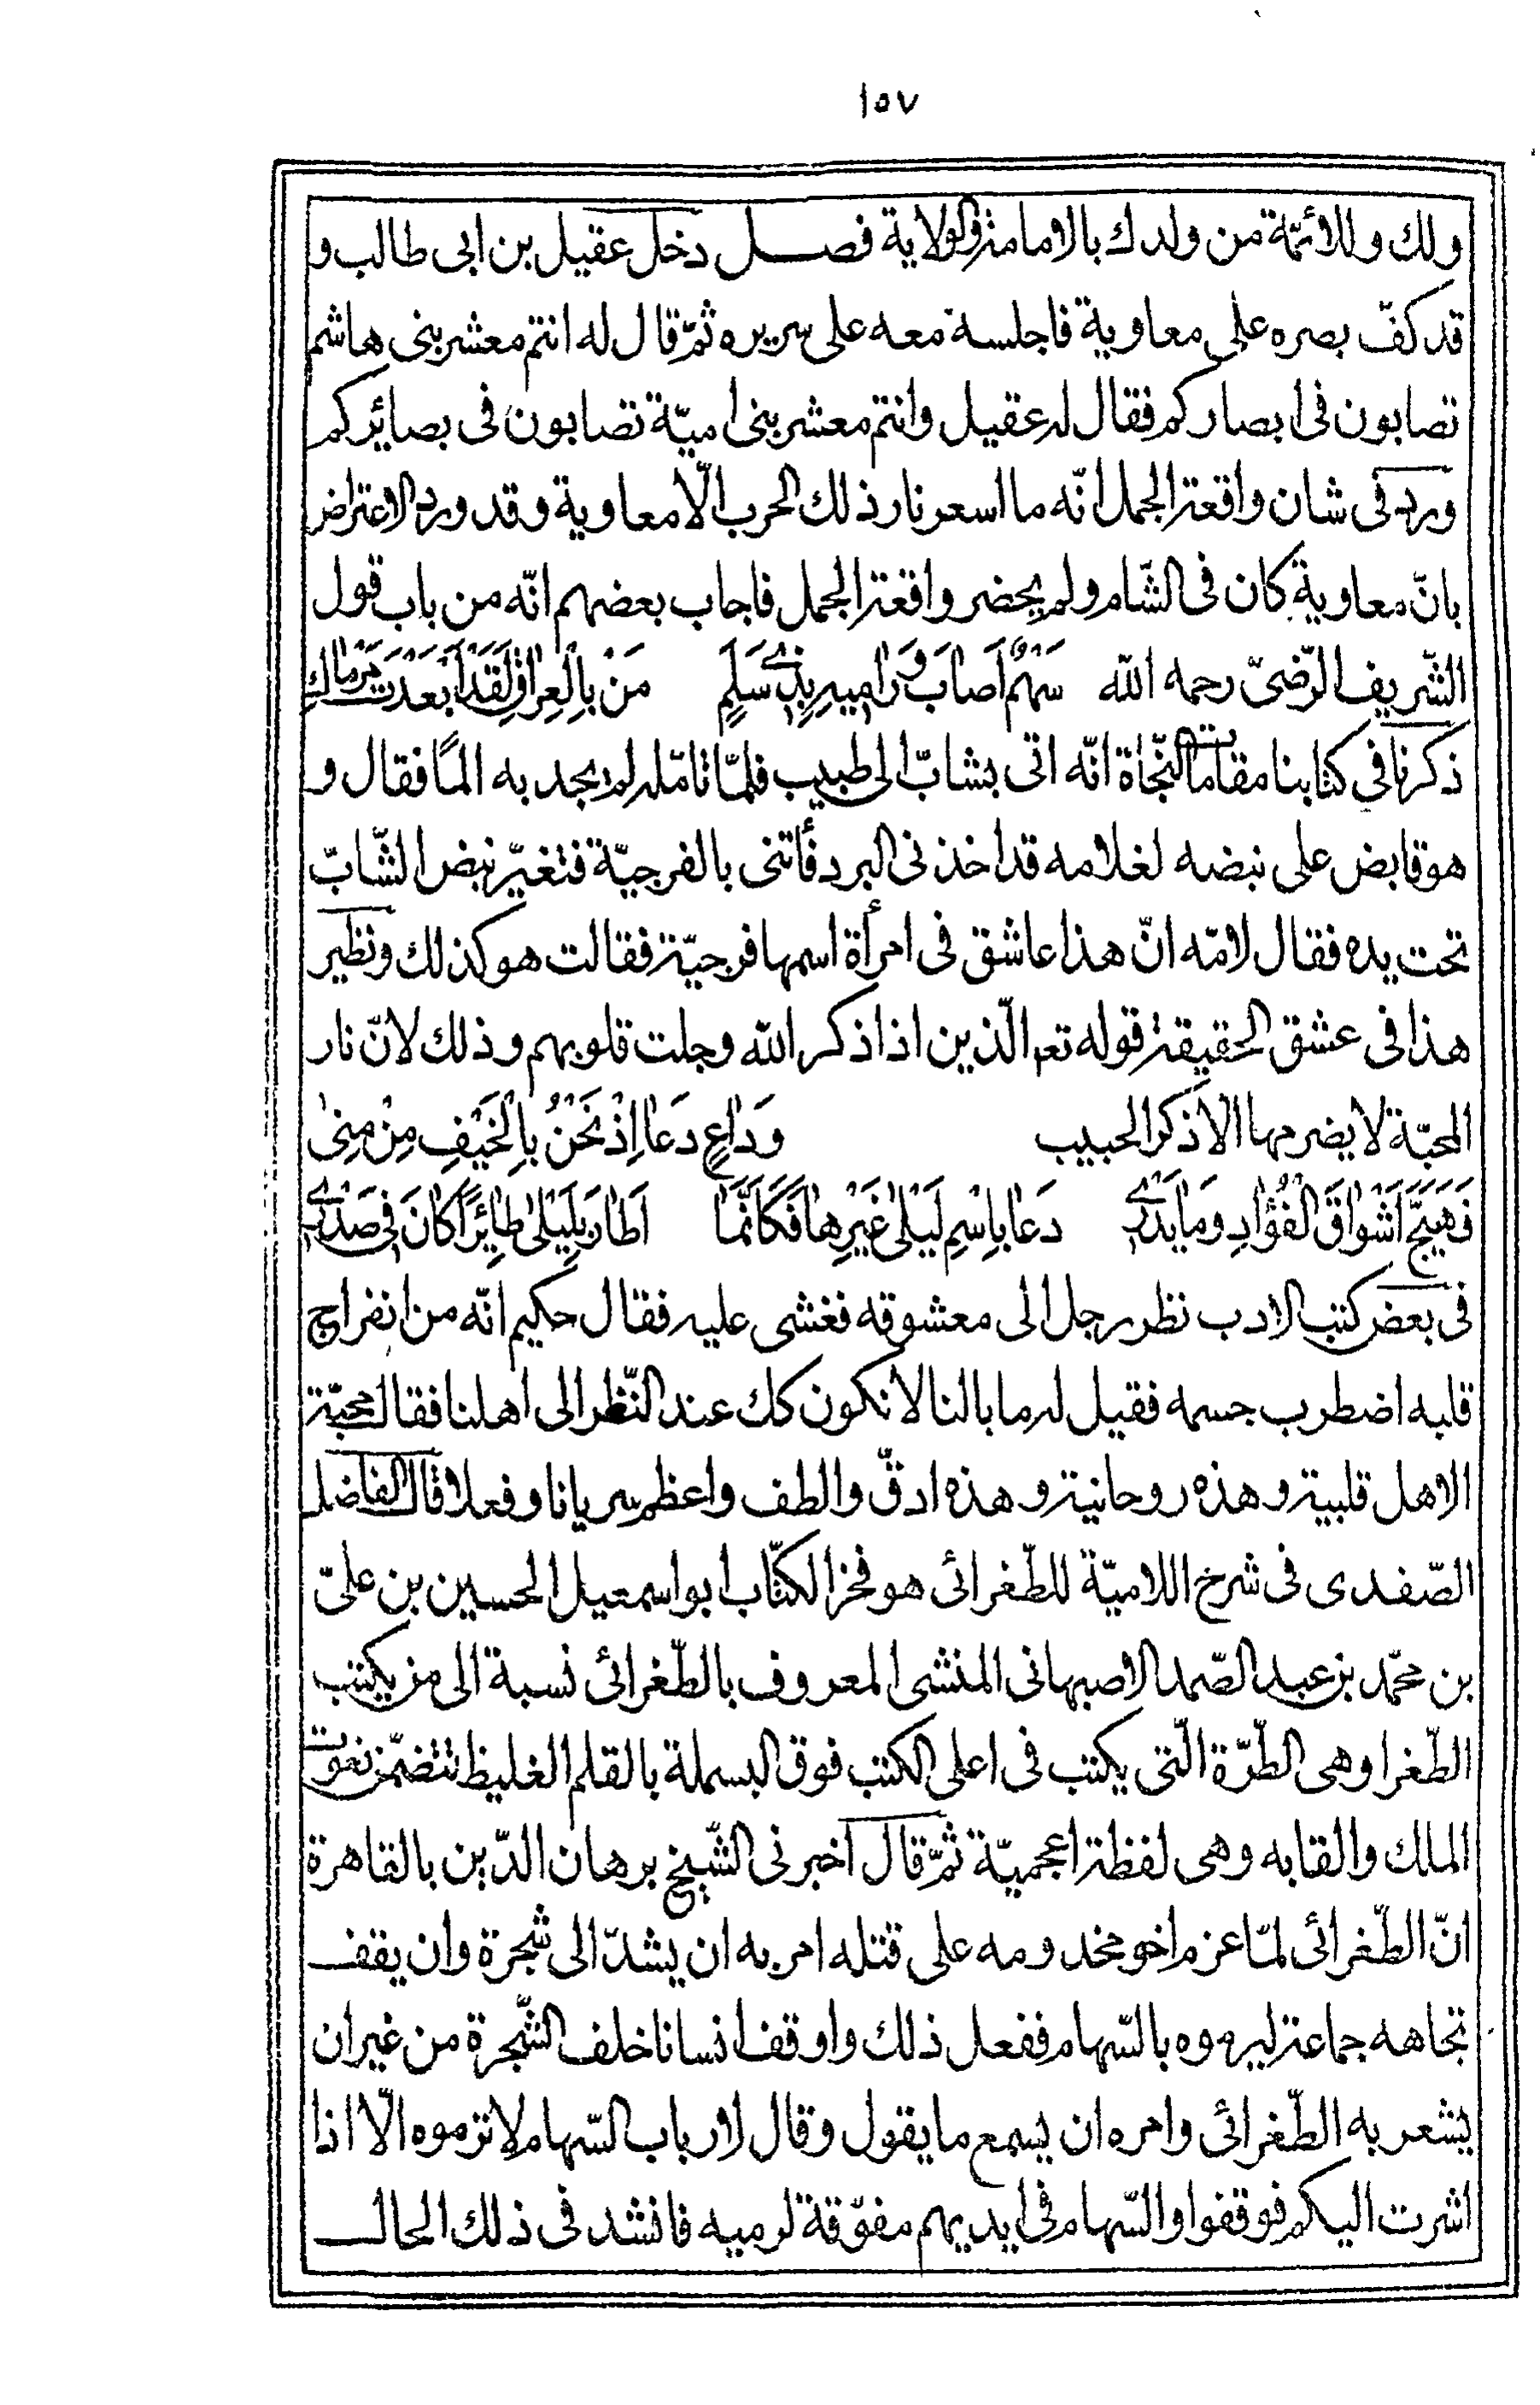 ١٥٧
ولك وللائمّة من ولدك بالامامة والولاية فصل دخل عقيل بن ابى طالب و
قد كفّ بصره على معاوية فاجلسه معه على سريره ثمّ قال له انتم معشر بنى هاشم
تصابون فى ابصاركم فقال له عقيل وانتم معشر بنى اميّة تصابون فى بصايركم
ورد فى شان واقعة الجمل انّه ما اسعر نار ذلك الحرب الّا معاوية وقد ورد الاعتراض
بانّ معاوية كان فى الشّام ولم يحضر واقعة الجمل فاجاب بعضهم انّه من باب قول
الشّريف الرّضىّ رحمه الله سَهْمٌ اَصابَ وَرامِيهِ بِذِي سَلَمٍ مَنْ بِالْعِراقِ لَقَدْ اَبْعَدْتِ مَرْماكِ
ذكرنا فى كتابنا مقامات النّجاة انّه اتى بشابّ الى طبيب فلمّا تامّله لم يجد به المًا فقال و
هو قابض على نبضه لغلامه قد اخذنى البرد فأتنى بالفرجيّة فتغيّر نبض الشّابّ
تحت يده فقال لامّه انّ هذا عاشق فى امرأة اسمها فرجيّة فقالت هو كذلك ونظير
هذا فى عشق الحقيقة قوله تعم الّذين اذا ذكر الله وجلت قلوبهم وذلك لانّ نار
المحبّة لا يضرمها الا ذكر الحبيب وَداعٍ دَعا اِذْ نَحْنُ بِالْخَيْفِ مِنْ مِنىٰ
فَهَيَّجَ اَشْواقَ الْفُؤادِ وَما يَدْرِي دَعا بِاسْمِ لَيْلىٰ غَيْرِها فَكَاَنَّما اَطارَ بِلَيْلىٰ طائِرًا كانَ فِي صَدْرِي
فى بعض كتب الادب نظر رجل الى معشوقه فغشى عليه فقال حكيم انّه من انفراج
قلبه اضطرب جسمه فقيل له ما بالنا لا نكون كك عند النّظر الى اهلنا فقال محبّة
الاهل قلبية وهذه روحانية وهذه ادقّ والطف واعظم سريانا وفعلا قال الفاضل
الصّفدى فى شرح اللاميّة للطّغرائى هو فخر الكتّاب ابو اسمعيل الحسين بن علىّ
بن محمّد بن عبد الصّمد الاصبهانى المنشى المعروف بالطّغرائى نسبة الى من يكتب
الطّغرا وهى الطّرّة الّتى يكتب فى اعلى الكتب فوق البسملة بالقلم الغليظ تتضمّن نعوت
الملك والقابه وهى لفظة اعجميّة ثمّ قال اخبرنى الشّيخ برهان الدّين بالقاهرة
انّ الطّغرائى لمّا عزم اخو مخدومه على قتله امر به ان يشدّ الى شجرة وان يقف
تجاهه جماعة ليرموه بالسّهام ففعل ذلك واوقف انسانا خلف الشّجرة من غير ان
يشعر به الطّغرائى وامره ان يسمع ما يقول وقال لارباب السّهام لا ترموه الّا اذا
اشرت اليكم فوقفوا والسّهام فى ايديهم مفوّقة لرميه فانشد فى ذلك الحال